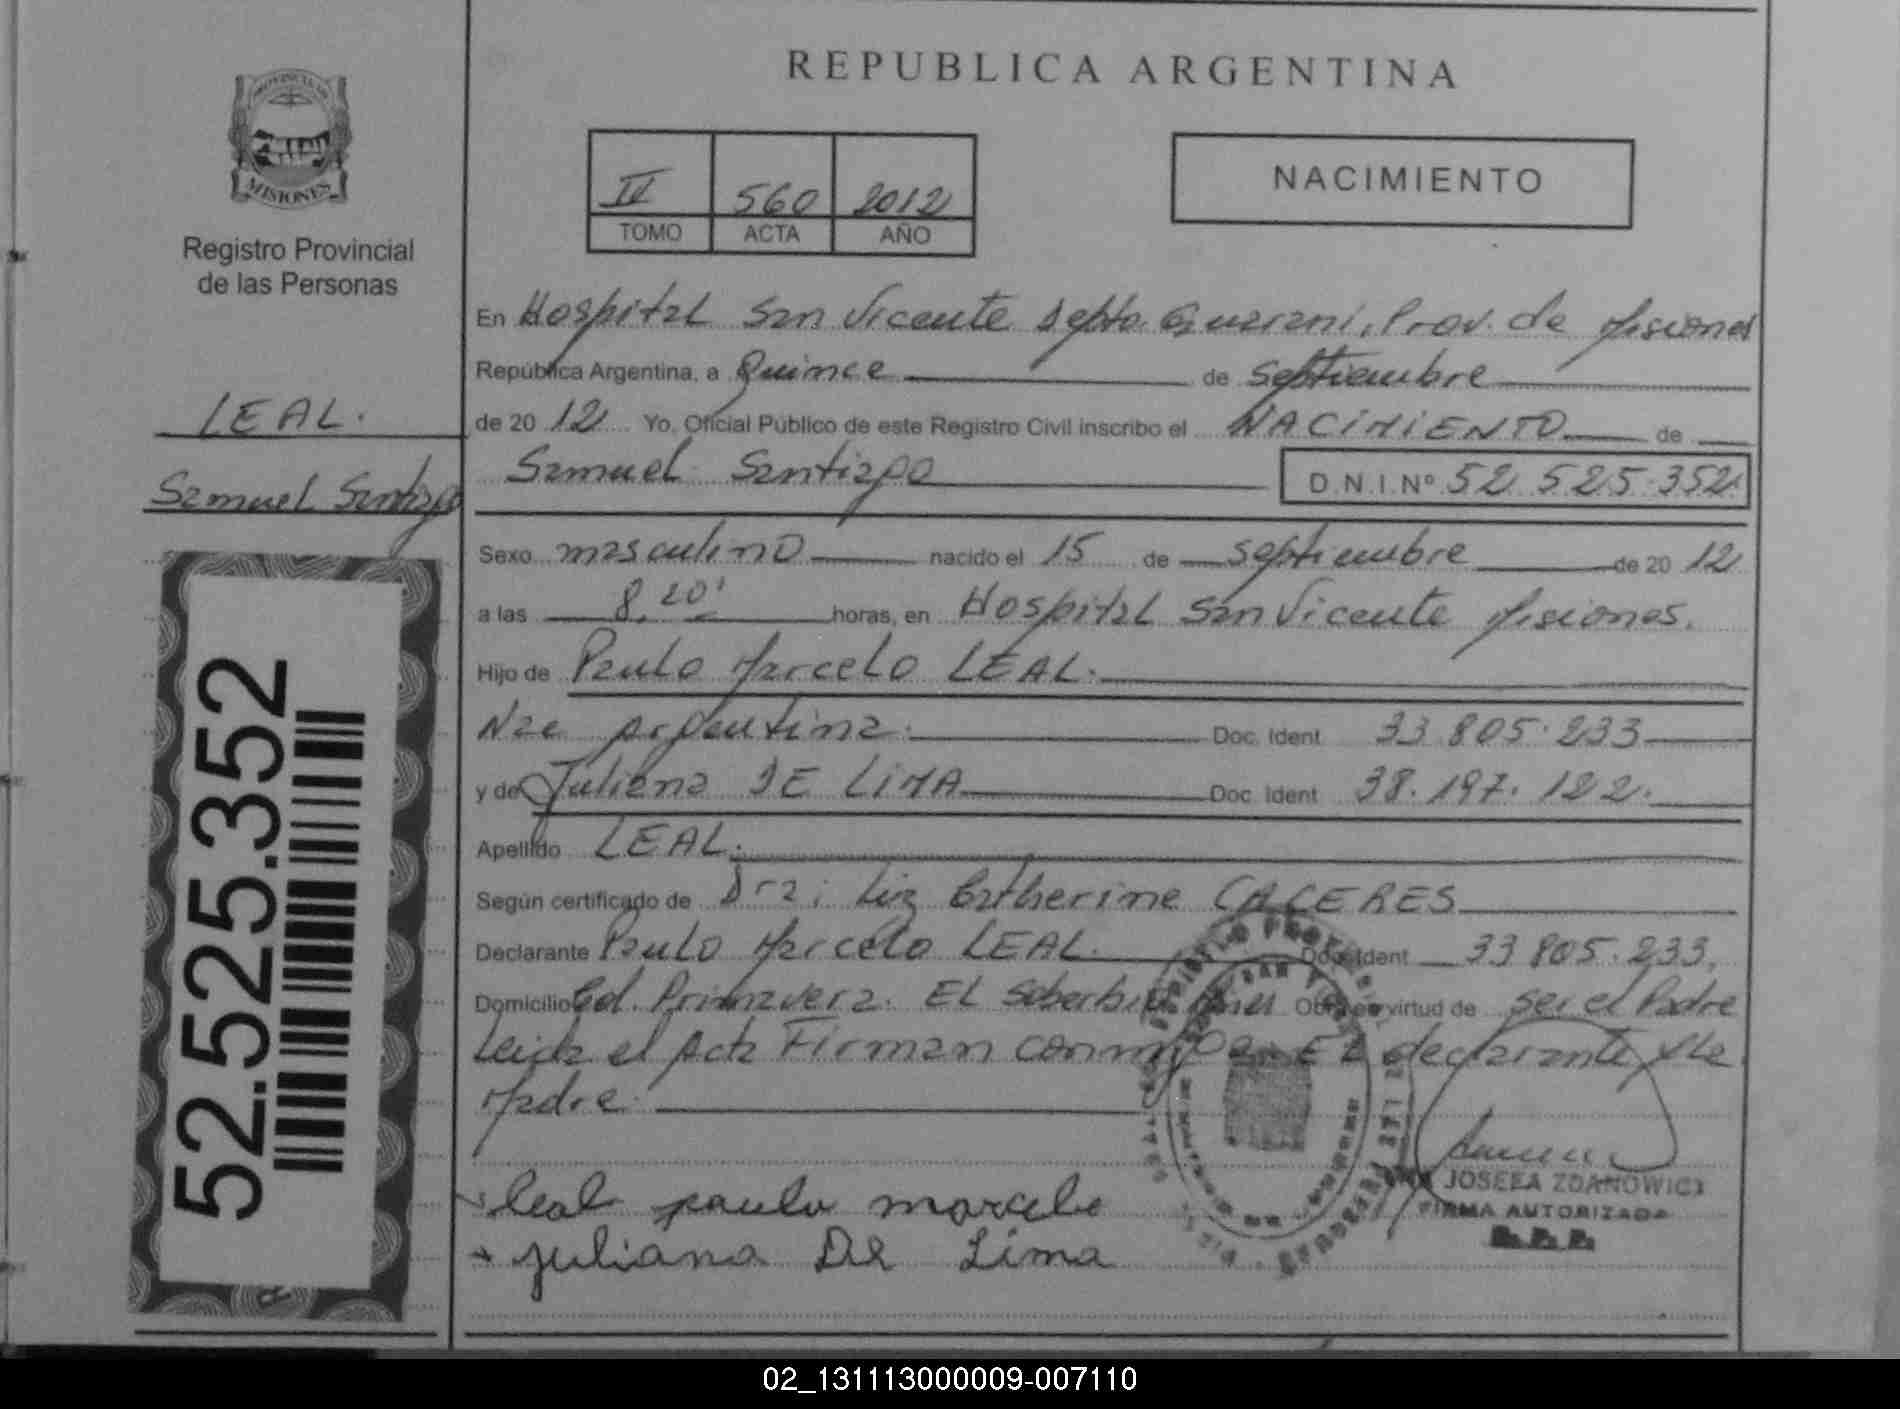 REPUBLICA ARGENTINA
PROVINCIA DE
MISIONES
Registro Provincial
de las Personas
II 560 2012
TOMO ACTA AÑO
NACIMIENTO
LEAL.
Samuel Santiago
52.525.352
En Hospital San Vicente Depto. Guarani, Prov. de Misiones
República Argentina, a Quince de Septiembre
de 20 12 Yo, Oficial Público de este Registro Civil inscribo el NACIMIENTO de
Samuel Santiago D.N.I.Nº 52.525.352
Sexo masculino nacido el 15 de septiembre de 20 12
a las 8,20' horas, en Hospital San Vicente Misiones.
Hijo de Paulo Marcelo LEAL.
Nac Argentina. Doc. Ident 33.805.233
y de Juliana DE LIMA Doc. Ident 38.197.122.
Apellido LEAL.
Según certificado de Dra; Liz Catherine CACERES
Declarante Paulo Marcelo LEAL. Doc. Ident 33.805.233.
Domicilio Col. Primavera. El Soberbio Mnes Obra en virtud de ser el Padre
Leida el Acta Firman conmigo El declarante y la
Madre.
leal paulo marcelo
juliana De Lima
JOSEFA ZDANOWICZ
FIRMA AUTORIZADA
R. P. P.
02_131113000009-007110